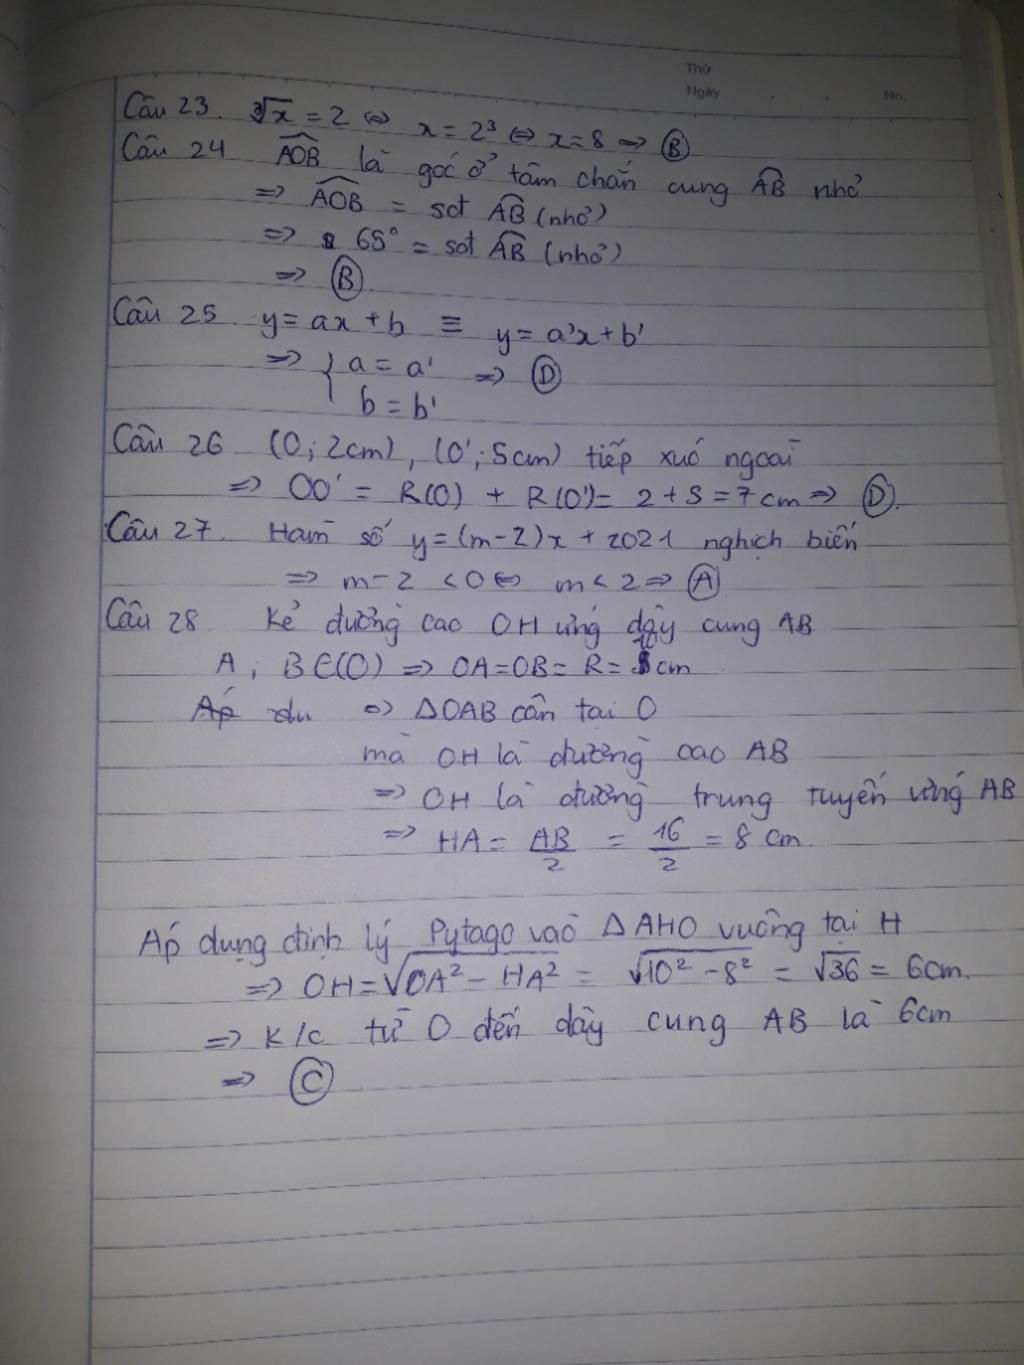 Thứ
Ngày . . No.
Câu 23. ∛x = 2 ⇔ x = 2³ ⇔ x = 8 ⇒ Ⓑ
Câu 24 AOB là góc ở tâm chắn cung AB nhỏ
⇒ AOB = sđ AB (nhỏ)
⇒ 65° = sđ AB (nhỏ)
⇒ Ⓑ.
Câu 25 y = ax + b ≡ y = a'x + b'
⇒ { a = a' ⇒ Ⓓ
b = b'
Câu 26 (O; 2cm), (O'; 5cm) tiếp xúc ngoài
⇒ OO' = R(O) + R(O') = 2 + 5 = 7 cm ⇒ Ⓓ.
Câu 27. Hàm số y = (m-2)x + 2021 nghịch biến
⇒ m - 2 < 0 ⇔ m < 2 ⇒ Ⓐ
Câu 28. Kẻ đường cao OH ứng dây cung AB
A; B ∈ (O) ⇒ OA = OB = R = cm
Áp du ⇒ ΔOAB cân tại O
mà OH là đường cao AB
⇒ OH là đường trung tuyến ứng AB
⇒ HA = AB/2 = 16/2 = 8 cm.
Áp dụng định lý Pytago vào ΔAHO vuông tại H
⇒ OH = √(OA² - HA²) = √(10² - 8²) = √36 = 6cm.
⇒ K/c từ O đến dây cung AB là 6cm
⇒ Ⓒ